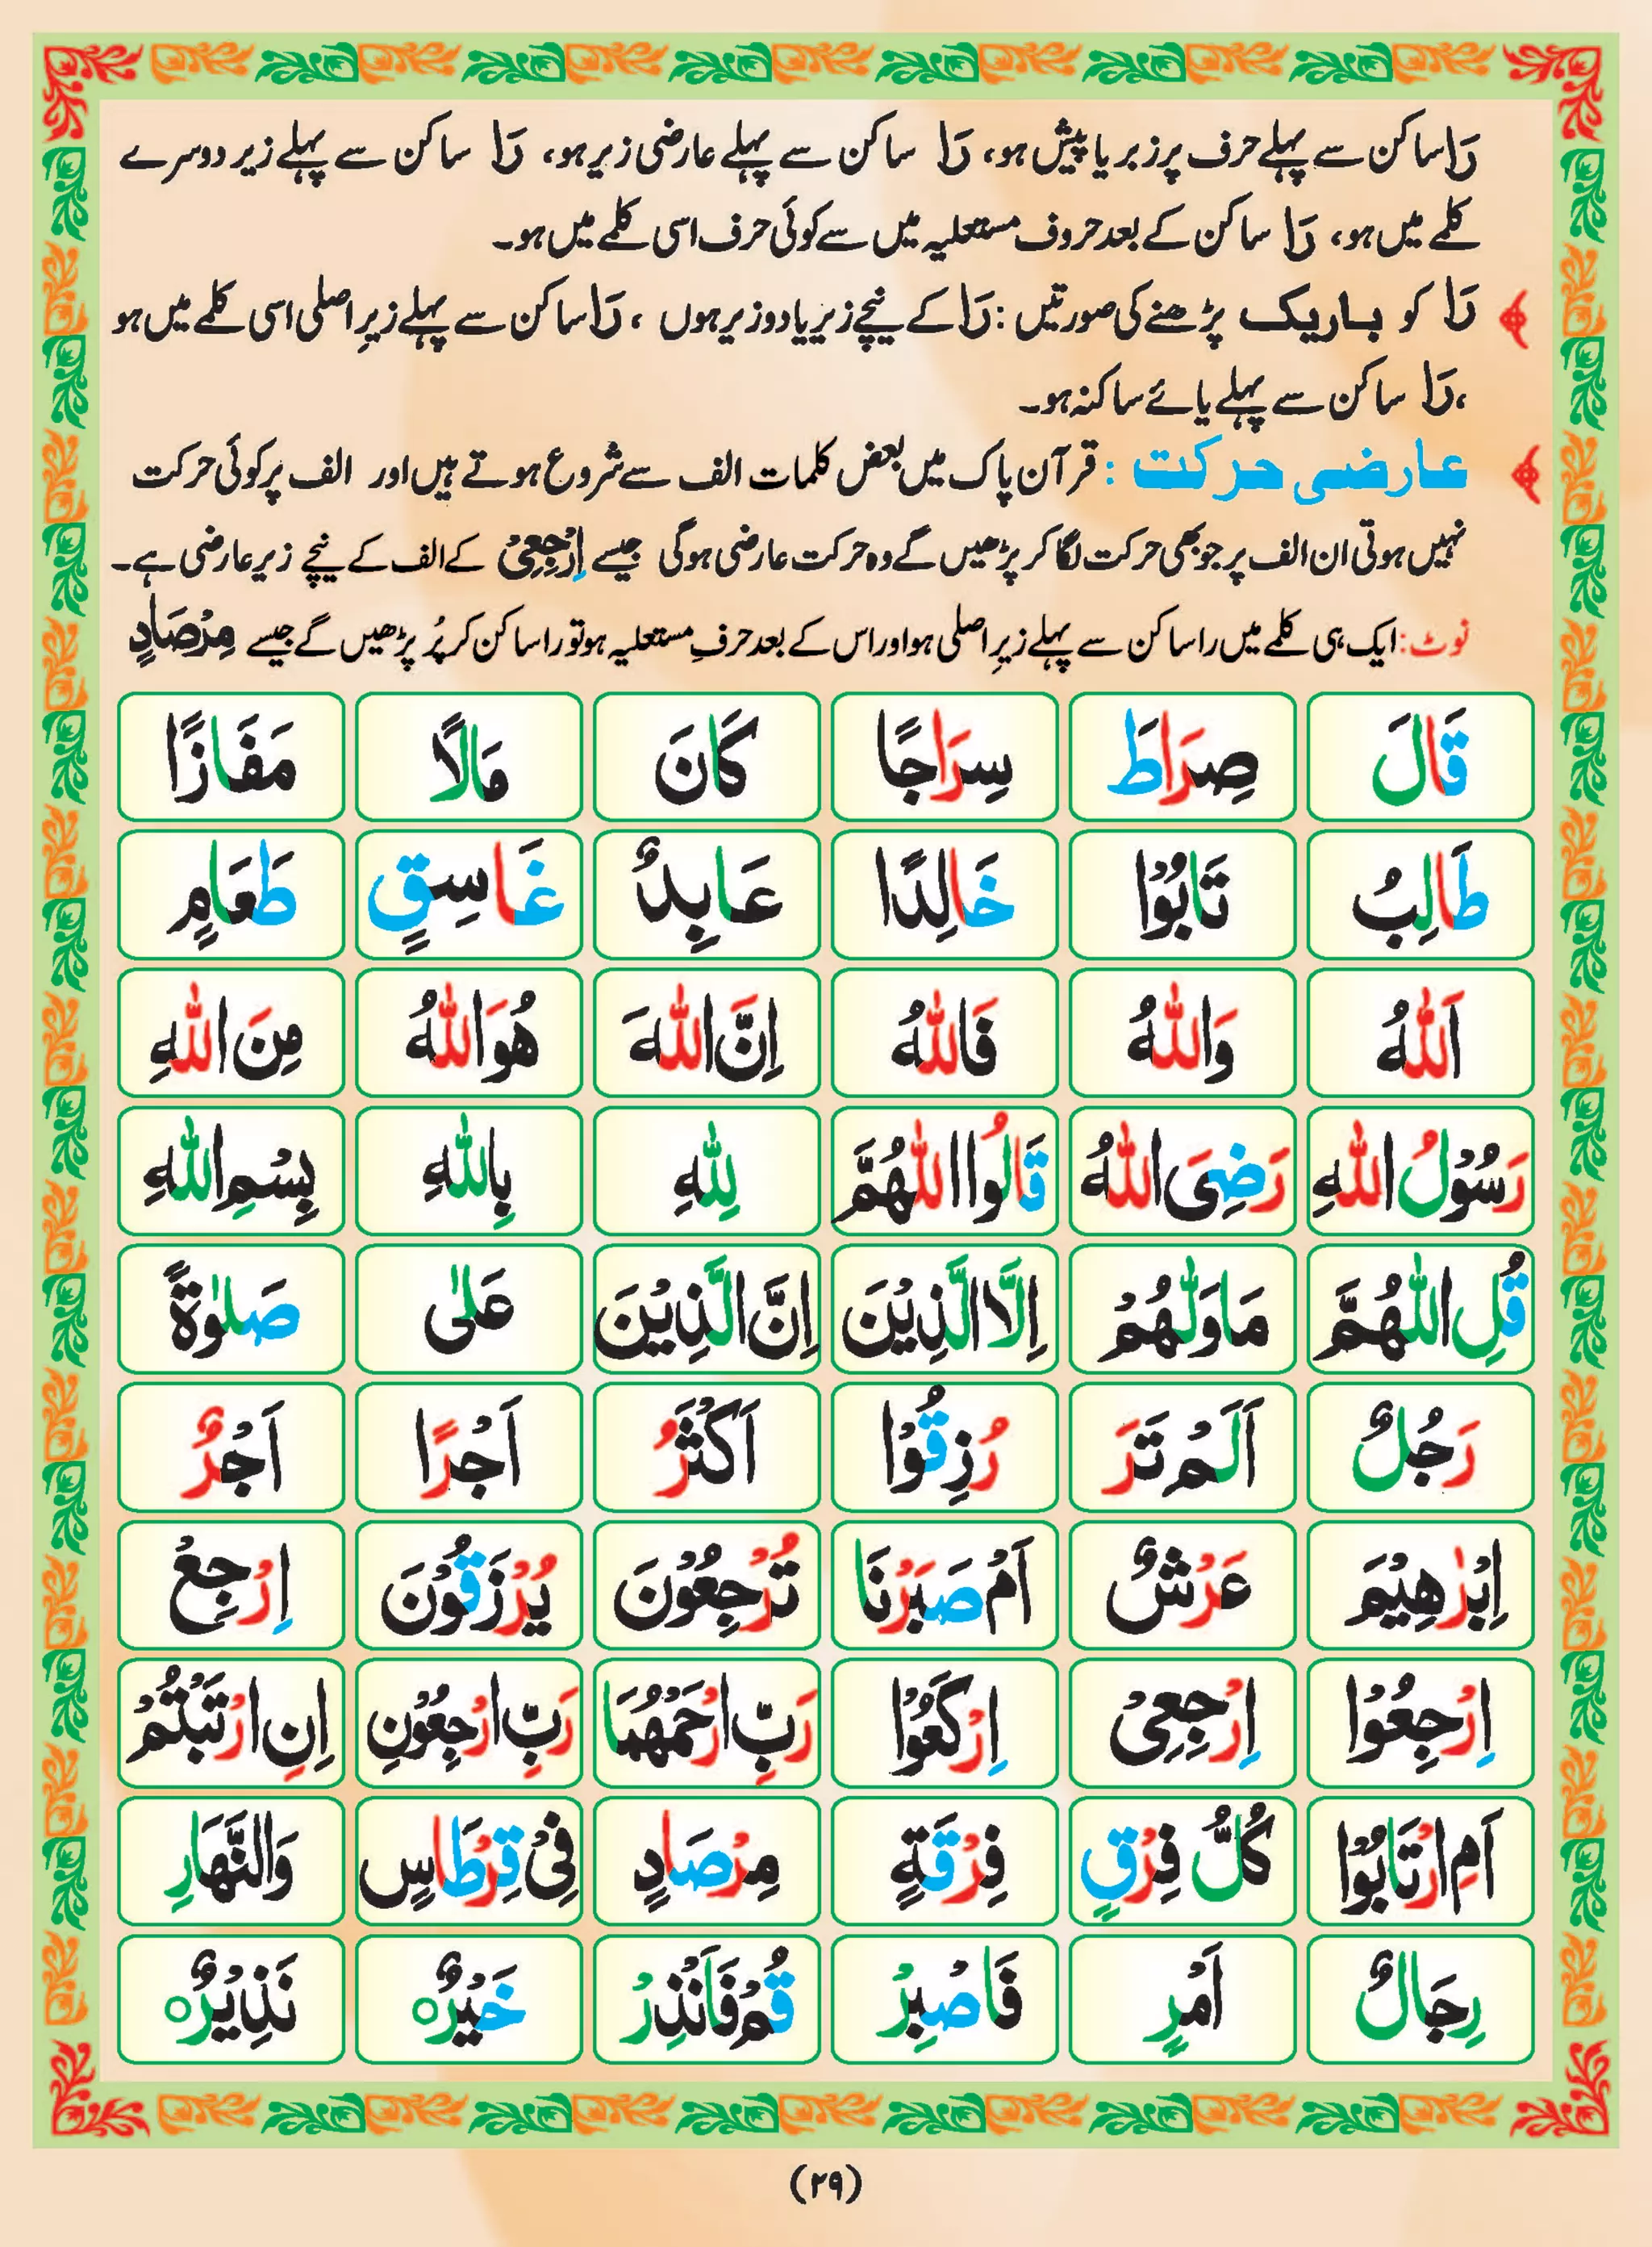 رَا ساکن سے پہلے حرف پر زبر یا پیش ہو، رَا ساکن سے پہلے عارضی زیر ہو، رَا ساکن سے پہلے زیر دوسرے
کلمے میں ہو، رَا ساکن کے بعد حروف مستعلیہ میں سے کوئی حرف اسی کلمے میں ہو۔
رَا کو باریک پڑھنے کی صورتیں: رَا کے نیچے زیر یا دو زیر ہوں، رَا ساکن سے پہلے زیرِ اصلی اسی کلمے میں ہو
،رَا ساکن سے پہلے یائے ساکنہ ہو۔
عارضی حرکت : قرآن پاک میں بعض کلمات الف سے شروع ہوتے ہیں اور الف پر کوئی حرکت
نہیں ہوتی ان الف پر جو بھی حرکت لگا کر پڑھیں گے وہ حرکت عارضی ہوگی جیسے اِرْجِعِیْ کے الف کے نیچے زیر عارضی ہے۔
نوٹ: ایک ہی کلمے میں را ساکن سے پہلے زیرِ اصلی ہو اور اس کے بعد حرفِ مستعلیہ ہو تو را ساکن کر پُر پڑھیں گے جیسے مِرْصَادٍ
قَالَ صِرَاطَ سِرَاجًا كَانَ مَالًا مَفَازًا
طَالِبُ تَابُوْا خَالِدًا عَابِدٌ غَاسِقٍ طَعَامٍ
اَللّٰهُ وَاللّٰهُ فَاللّٰهُ اِنَّ اللّٰهَ هُوَ اللّٰهُ مِنَ اللّٰهِ
رَسُوْلُ اللّٰهِ رَضِیَ اللّٰهُ قَالُوا اللّٰهُمَّ لِلّٰهِ بِاللّٰهِ بِسْمِ اللّٰهِ
قُلِ اللّٰهُمَّ مَا وَلّٰهُمْ اِلَّا الَّذِيْنَ اِنَّ الَّذِيْنَ عَلٰى صَلٰوةً
رَجُلٌ اَلَمْ تَرَ رُزِقُوْا اَكْثَرُ اَجْرًا اَجْرٌ
اِبْرٰهِيْمَ عَرْشٌ اَمْ صَبَرْنَا تُرْجَعُوْنَ يُرْزَقُوْنَ اِرْجِعْ
اِرْجِعُوْا اِرْجِعِیْ اِرْكَعُوْا رَبِّ ارْحَمْهُمَا رَبِّ ارْجِعُوْنِ اِنِ ارْتَبْتُمْ
اَمِ ارْتَابُوْا كُلُّ فِرْقٍ فِرْقَةٍ مِرْصَادٍ فِیْ قِرْطَاسٍ وَالنَّهَارِ
رِجَالٌ اَمْرٍ فَاصْبِرْ قُمْ فَاَنْذِرْ خَيْرٌ۝ نَذِيْرٌ۝
(۲۹)